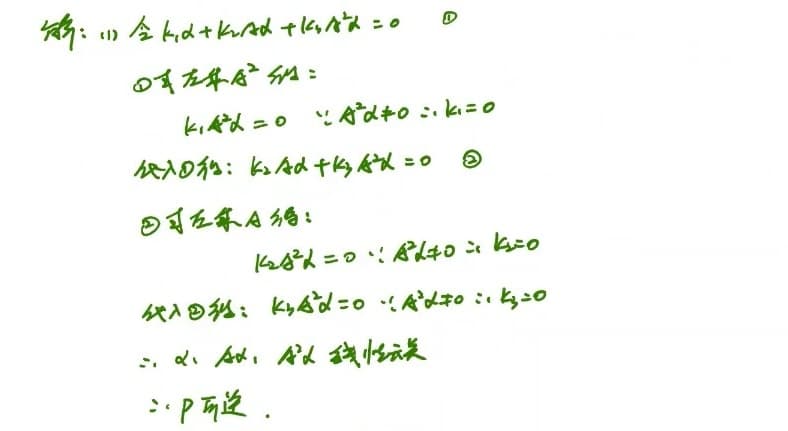 解：(1) 令 k₁α+k₂Aα+k₃A²α=0 ①
①式左乘A²得：
k₁A²α=0 ∵A²α≠0 ∴k₁=0
代入①得：k₂Aα+k₃A²α=0 ②
②式左乘A得：
k₂A²α=0 ∵A²α≠0 ∴k₂=0
代入②得：k₃A²α=0 ∵A²α≠0 ∴k₃=0
∴α、Aα、A²α 线性无关
∴P可逆.